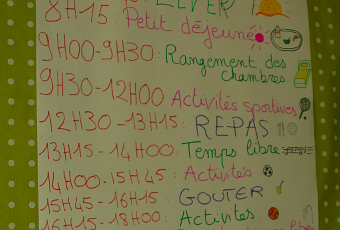 LEVER
8H15: Petit déjeuné
9H00-9H30: Rangement des
chambres.
9H30-12H00 Activités sportives
12H30-13H15: REPAS
13H15-14H00: Temps libre
14H00-15H45: Activités
15H45-16H15: GOUTER
16H15-18H00: Activites